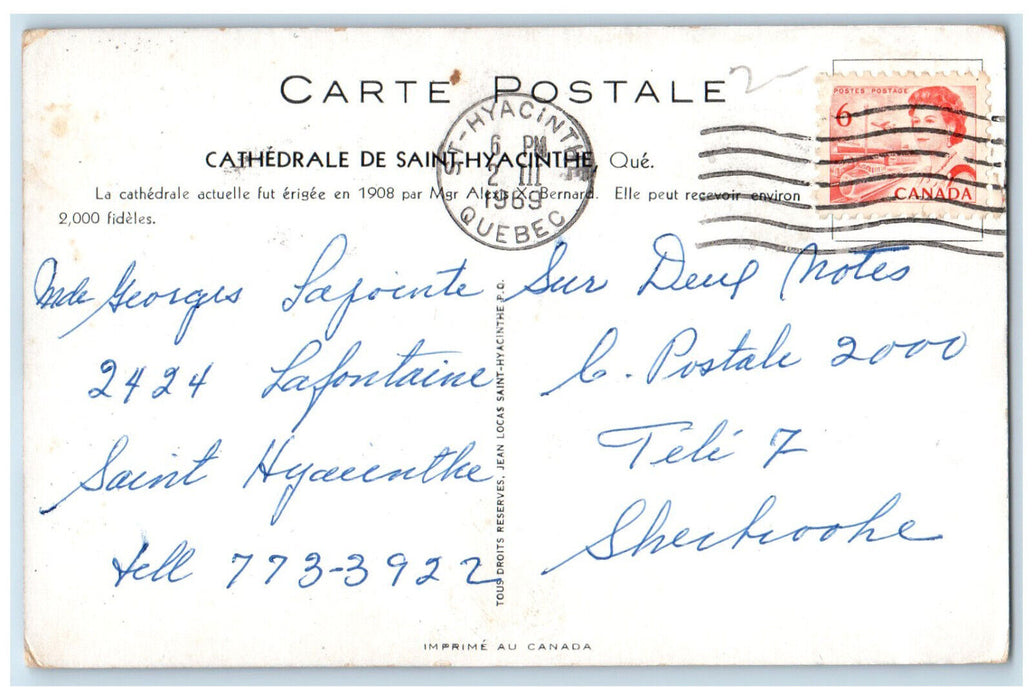 CARTE POSTALE
CATHÉDRALE DE SAINT-HYACINTHE, Qué.
La cathédrale actuelle fut érigée en 1908 par Mgr Alexis X. Bernard. Elle peut recevoir environ
2,000 fidèles.
ST-HYACINTHE
6 PM
2 III
1969
QUEBEC
POSTES POSTAGE
6
CANADA
Mde Georges Lajointe
2424 Lafontaine
Saint Hyacinthe
tell 773-3922
TOUS DROITS RESERVES, JEAN LOCAS SAINT-HYACINTHE P.Q.
Sur Deux Notes
C. Postale 2000
Télé 7
Sherbrooke
IMPRIMÉ AU CANADA